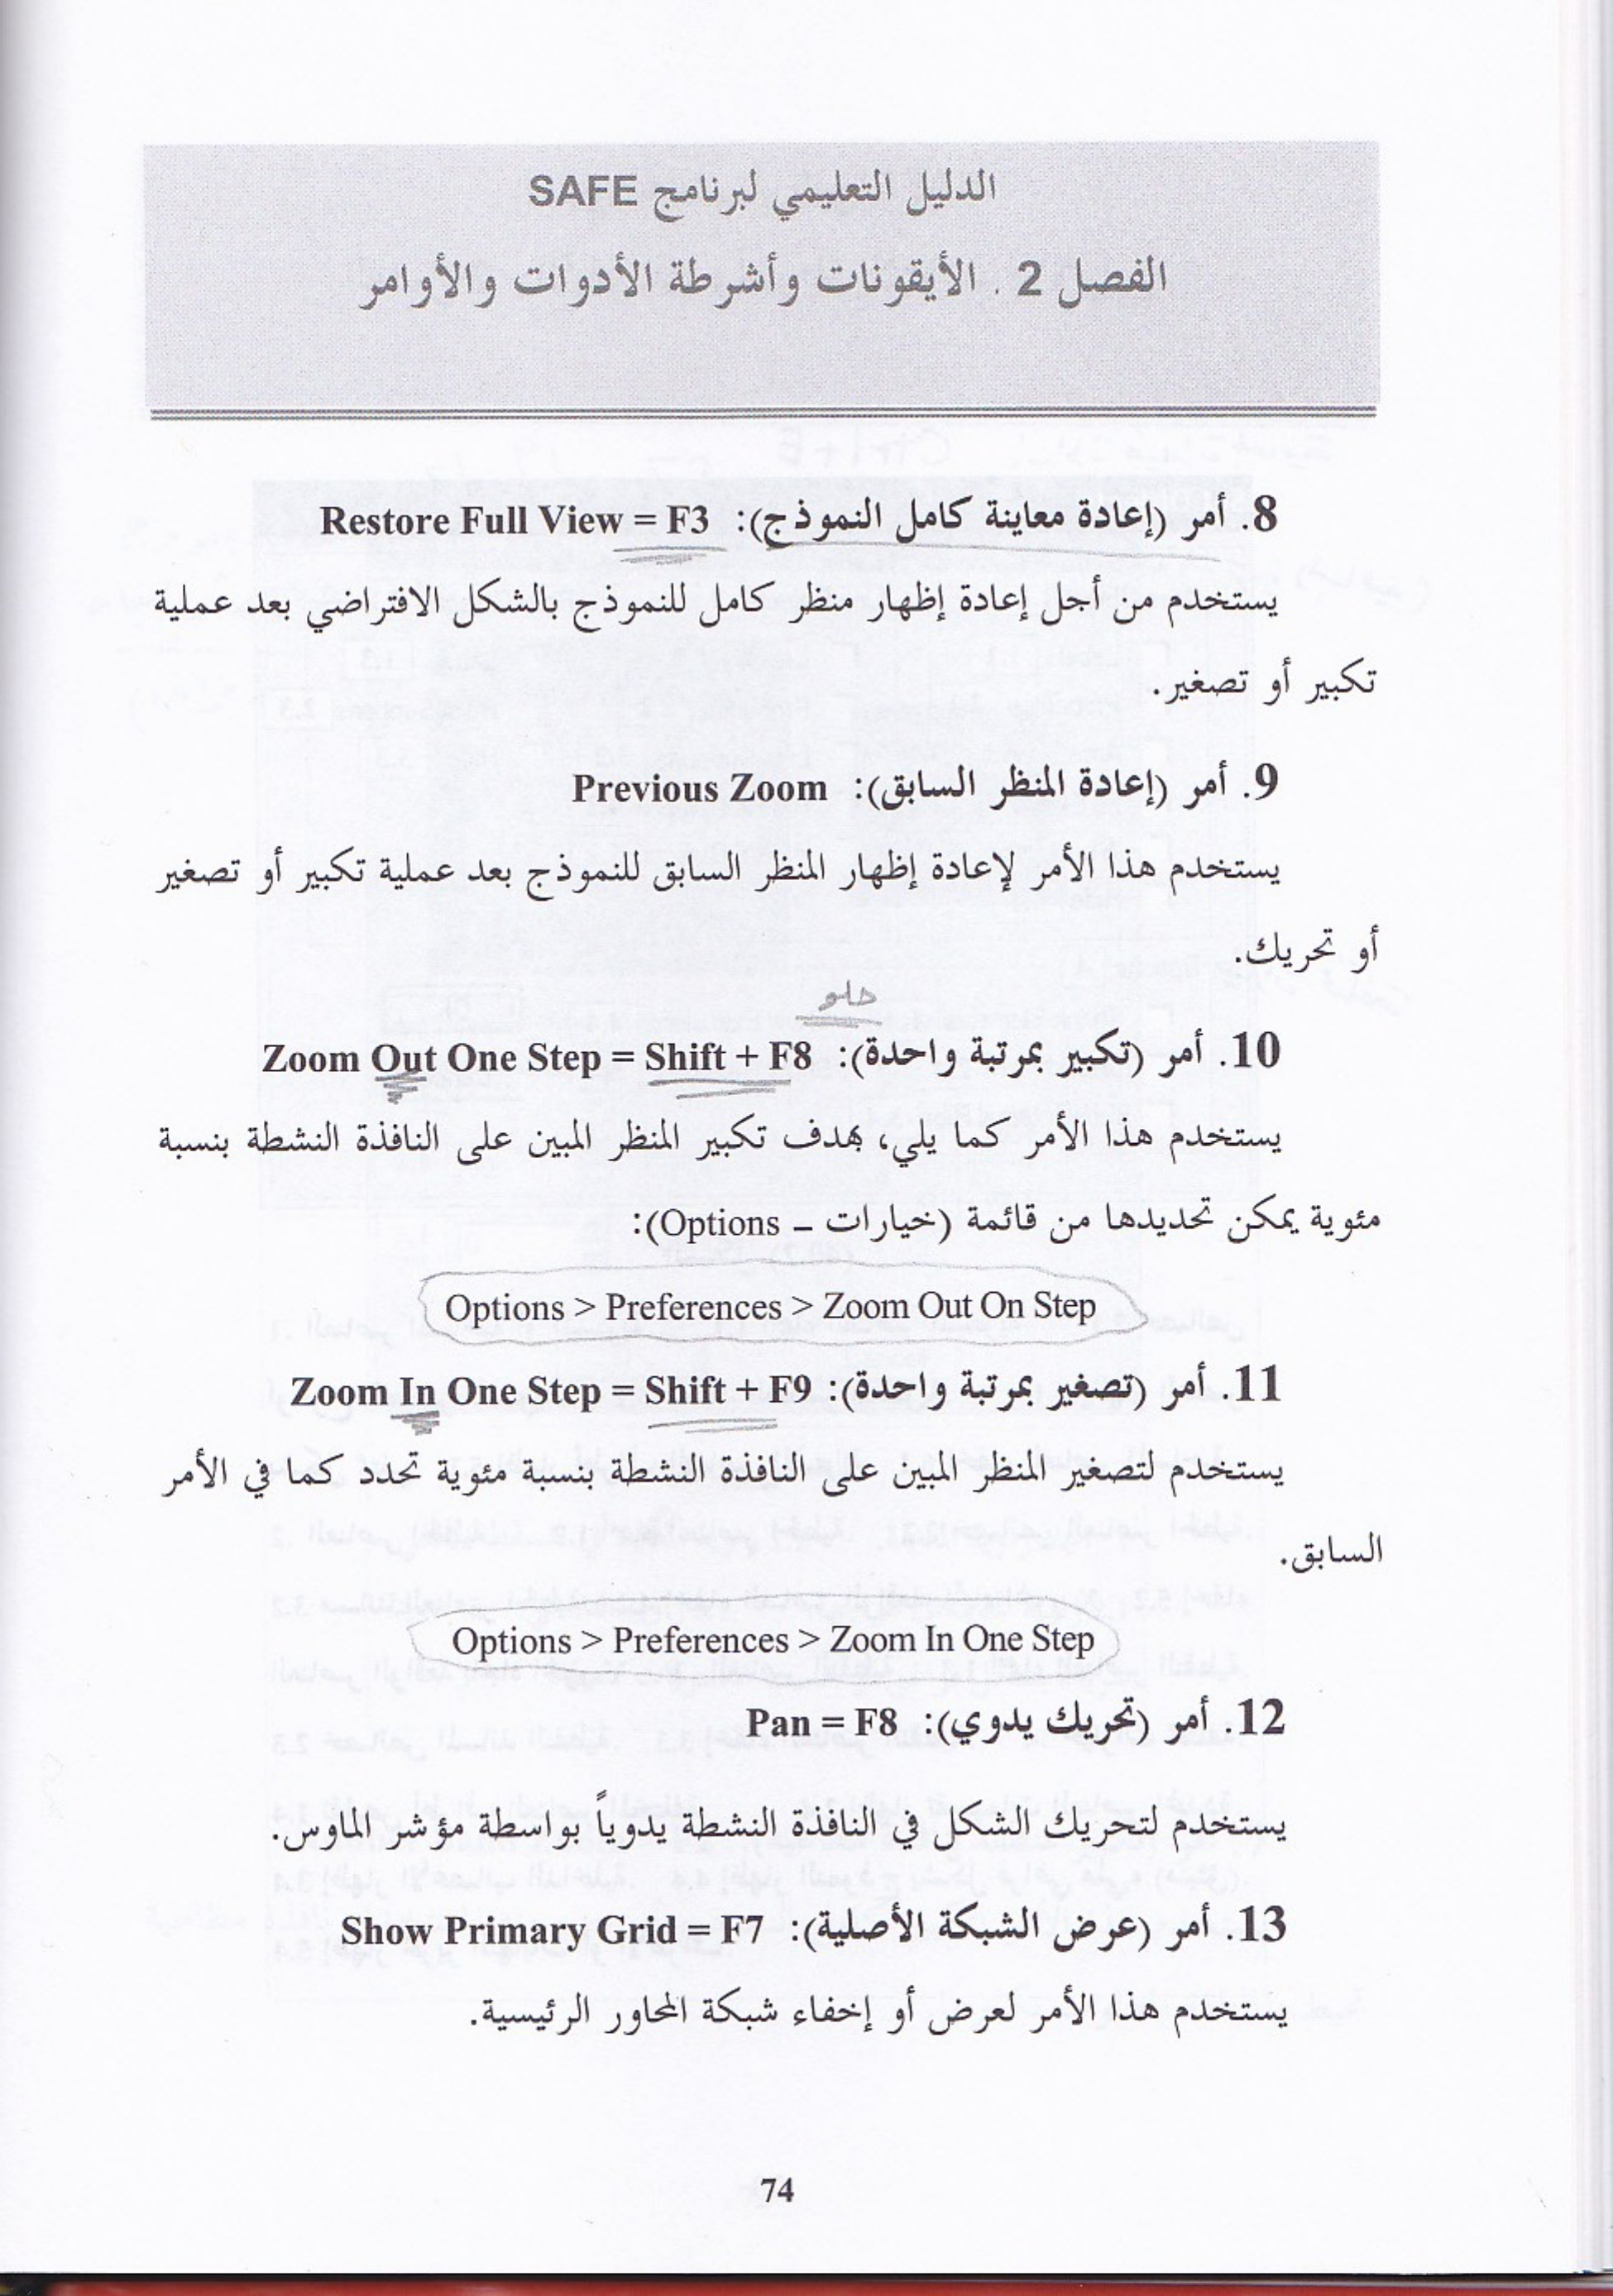 الدليل التعليمي لبرنامج SAFE
الفصل 2 . الأيقونات وأشرطة الأدوات والأوامر
8. أمر (إعادة معاينة كامل النموذج): Restore Full View = F3
يستخدم من أجل إعادة إظهار منظر كامل للنموذج بالشكل الافتراضي بعد عملية
تكبير أو تصغير.
9. أمر (إعادة المنظر السابق): Previous Zoom
يستخدم هذا الأمر لإعادة إظهار المنظر السابق للنموذج بعد عملية تكبير أو تصغير
أو تحريك.
حلو
10. أمر (تكبير بمرتبة واحدة): Zoom Out One Step = Shift + F8
يستخدم هذا الأمر كما يلي، بهدف تكبير المنظر المبين على النافذة النشطة بنسبة
مئوية يمكن تحديدها من قائمة (خيارات – Options):
Options > Preferences > Zoom Out On Step
11. أمر (تصغير بمرتبة واحدة): Zoom In One Step = Shift + F9
يستخدم لتصغير المنظر المبين على النافذة النشطة بنسبة مئوية تحدد كما في الأمر
السابق.
Options > Preferences > Zoom In One Step
12. أمر (تحريك يدوي): Pan = F8
يستخدم لتحريك الشكل في النافذة النشطة يدوياً بواسطة مؤشر الماوس.
13. أمر (عرض الشبكة الأصلية): Show Primary Grid = F7
يستخدم هذا الأمر لعرض أو إخفاء شبكة المحاور الرئيسية.
74